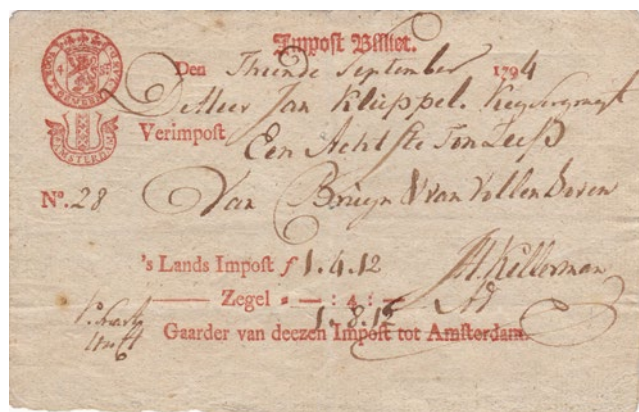 Impost Billet.
4 St
Den Thiende September 1794
De Heer Jan Kluppel. Keysersgragt
Verimpost Een Achtste Ton Zeep
AMSTERDAM
No. 28 Van Bruyn & van Vollenhoven
's Lands Impost f 1.4.12
H. Kellerman
Zegel = — : 4 : —
1.8.12
Gaarder van deezen Impost tot Amsterdam.